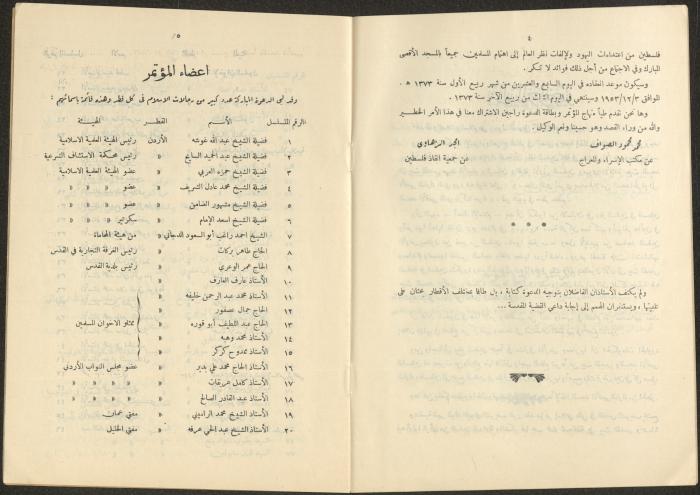 ٤
فلسطين من اعتداءات اليهود ولإلفات نظر العالم إلى اهتمام المسلمين جميعاً بالمسجد الأقصى
المبارك وفي الاجتماع من أجل ذلك فوائد لا تنكر.
وسيكون موعد انعقاده في اليوم السابع والعشرين من شهر ربيع الأول سنة ١٣٧٣ هـ.
الموافق ١٩٥٣/١٢/٣ وسينتهي في اليوم الثالث من ربيع الآخر سنة ١٣٧٣.
وها نحن نقدم طياً منهاج المؤتمر وبطاقة الدعوة راجين الاشتراك معنا في هذا الأمر الخطير
والله من وراء القصد وهو حسبنا ونعم الوكيل.
محمد محمود الصواف
امجد الزهاوي
عن مكتب الإسراء والمعراج
عن جمعية انقاذ فلسطين
* * *
ولم يكتف الأستاذان الفاضلان بتوجيه الدعوة كتابة، بل طافا بمختلف الأقطار يحثان على
تلبيتها، ويستدران الهمم إلى إجابة داعي القضية المقدسة ...
٥
اعضاء المؤتمر
وقد لبى الدعوة المباركة عدد كبير من رجالات الاسلام في كل قطر وهذه قائمة باسمائهم:
الرقم المتسلسل الاسم القطر الهيئة
١ فضيلة الشيخ عبد الله غوشه الأردن رئيس الهيئة العلمية الاسلامية
٢ فضيلة الشيخ عبد الحميد السايح » رئيس محكمة الاستئناف الشرعية
٣ فضيلة الشيخ حمزه العربي » عضو الهيئة العلمية الاسلامية
٤ فضيلة الشيخ محمد عادل الشريف » عضو » » »
٥ فضيلة الشيخ مشهور الضامن » عضو » » »
٦ فضيلة الشيخ اسعد الإمام » سكرتير » » »
٧ الشيخ احمد راتب أبو السعود الدجاني » من هيئة المحاماة
٨ الحاج طاهر بركات » رئيس الغرفة التجارية في القدس
٩ الحاج عمر الوعري » رئيس بلدية القدس
١٠ الأستاذ عارف العارف »
١١ الأستاذ محمد عبد الرحمن خليفه »
١٢ الحاج جمال عصفور »
١٣ الحاج عبد اللطيف أبو قوره » ممثلو الاخوان المسلمين
١٤ الأستاذ محمد وهبه »
١٥ الأستاذ ممدوح كركر »
١٦ الأستاذ الحاج محمد علي بدير » عضو مجلس النواب الأردني
١٧ الأستاذ كامل عريقات » » » » »
١٨ الأستاذ عبد القادر الصالح » » » » »
١٩ الأستاذ الشيخ محمد » مفتي عمان
٢٠ الأستاذ الشيخ عبد الحي عرفه » مفتي الخليل